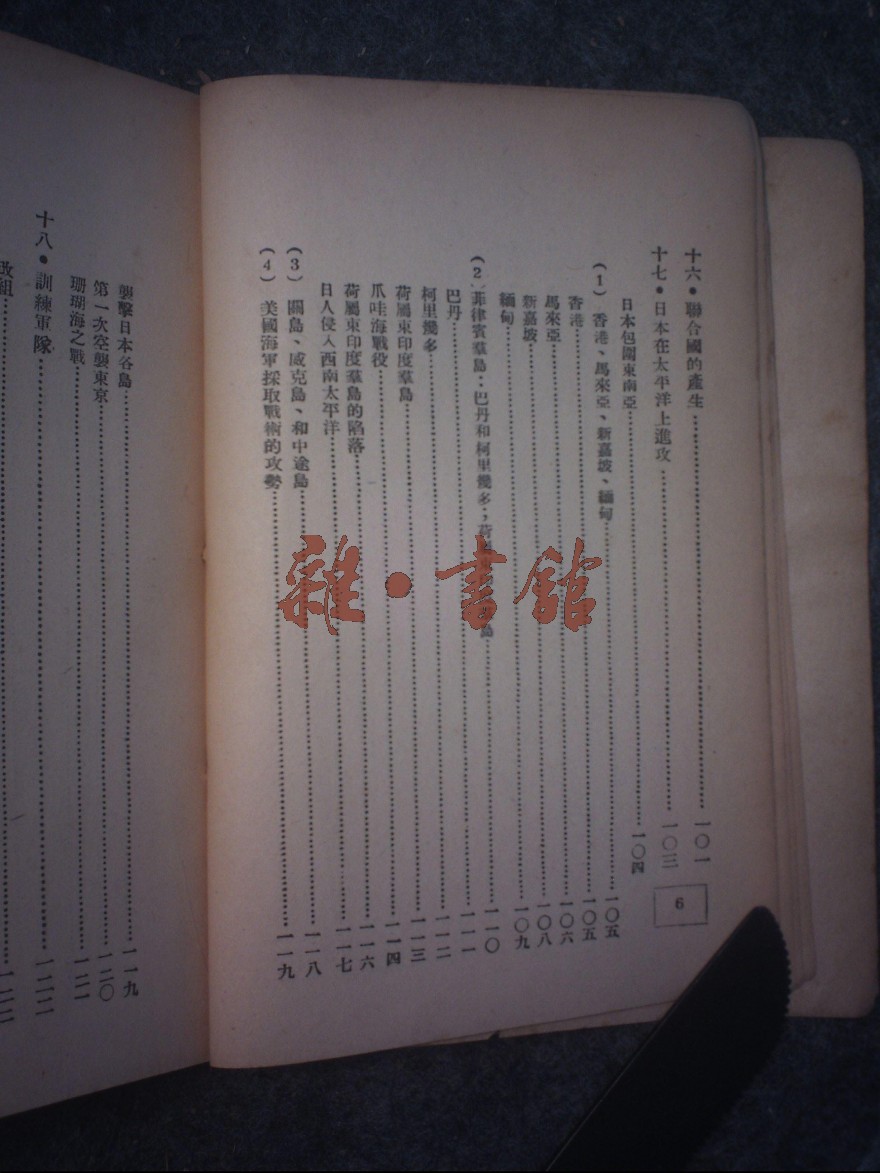 十六・聯合國的產生……一〇一
十七・日本在太平洋上進攻……一〇三
日本包圍東南亞……一〇四
(1) 香港、馬來亞、新嘉坡、緬甸……一〇五
香港……一〇五
馬來亞……一〇六
新嘉坡……一〇八
緬甸……一〇九
(2) 菲律賓羣島:巴丹和柯里幾多,荷屬東印度羣島……一一〇
巴丹……一一一
柯里幾多……一一二
荷屬東印度羣島……一一三
爪哇海戰役……一一四
荷屬東印度羣島的陷落……一一六
日人侵入西南太平洋……一一七
(3) 關島、威克島、和中途島……一一八
(4) 美國海軍採取戰術的攻勢……一一九
6
襲擊日本各島……一一九
第一次空襲東京……一二〇
珊瑚海之戰……一二一
十八・訓練軍隊……一二二
改組……一二二
雜・書館